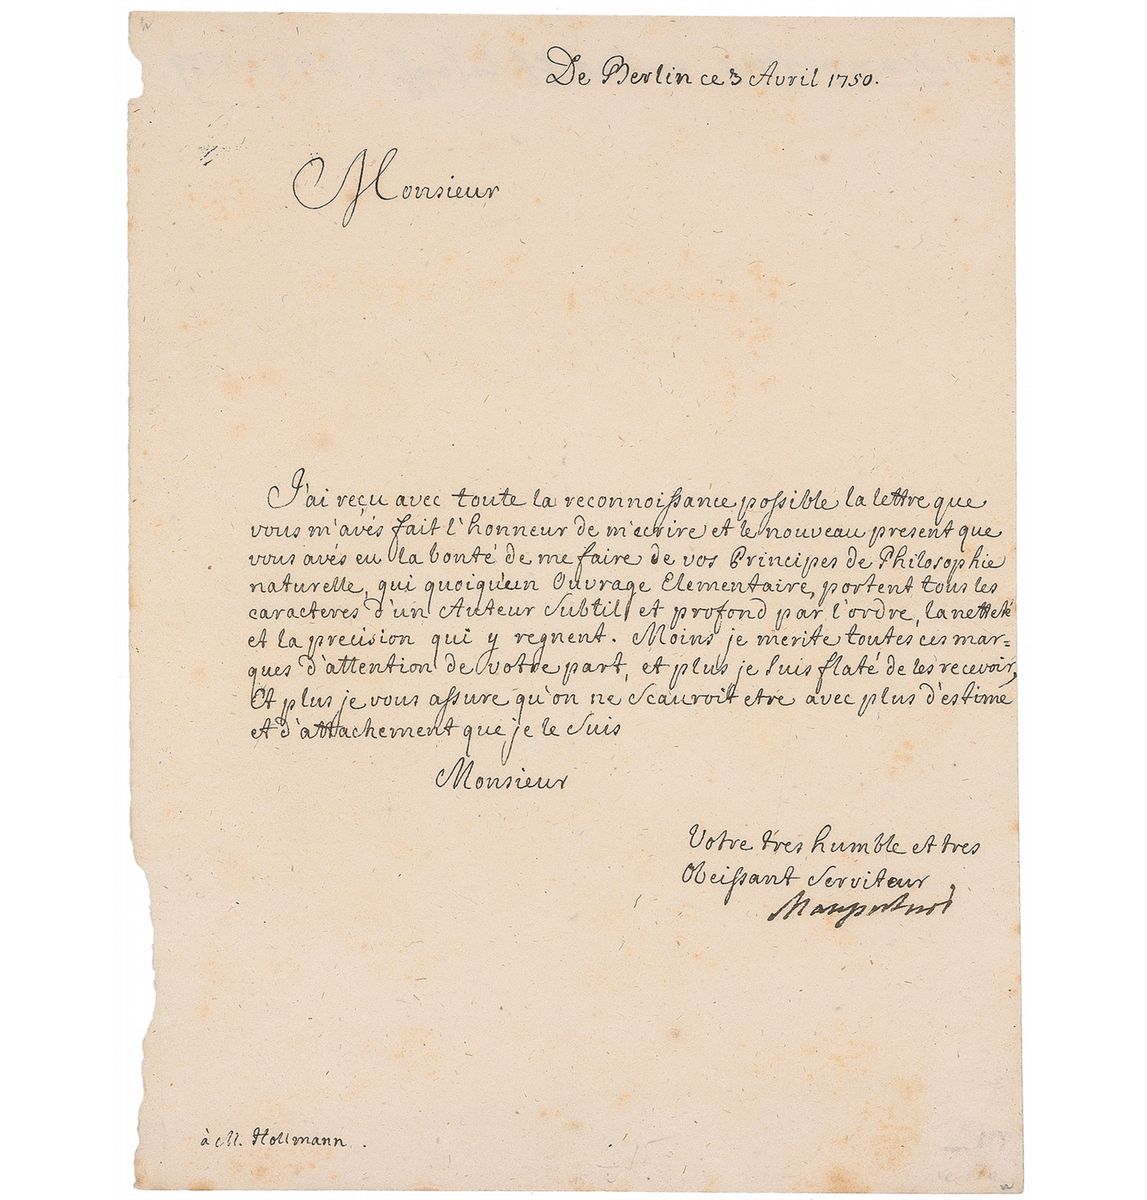 De Berlin ce 3 Avril 1750.
Monsieur
J'ai reçu avec toute la reconnoissance possible la lettre que
vous m'avés fait l'honneur de m'ecrire et le nouveau present que
vous avés eu la bonté de me faire de vos Principes de Philosophie
naturelle, qui quoiqu'un Ouvrage Elementaire, portent tous les
caracteres d'un Auteur Subtil et profond par l'ordre, la netteté
et la precision qui y regnent. Moins je merite toutes ces mar-
ques d'attention de votre part, et plus je suis flaté de les recevoir,
Et plus je vous assure qu'on ne scauroit etre avec plus d'estime
et d'attachement que je le suis
Monsieur
Votre tres humble et tres
Obeissant Serviteur
Maupertuis
à M. Hollmann.